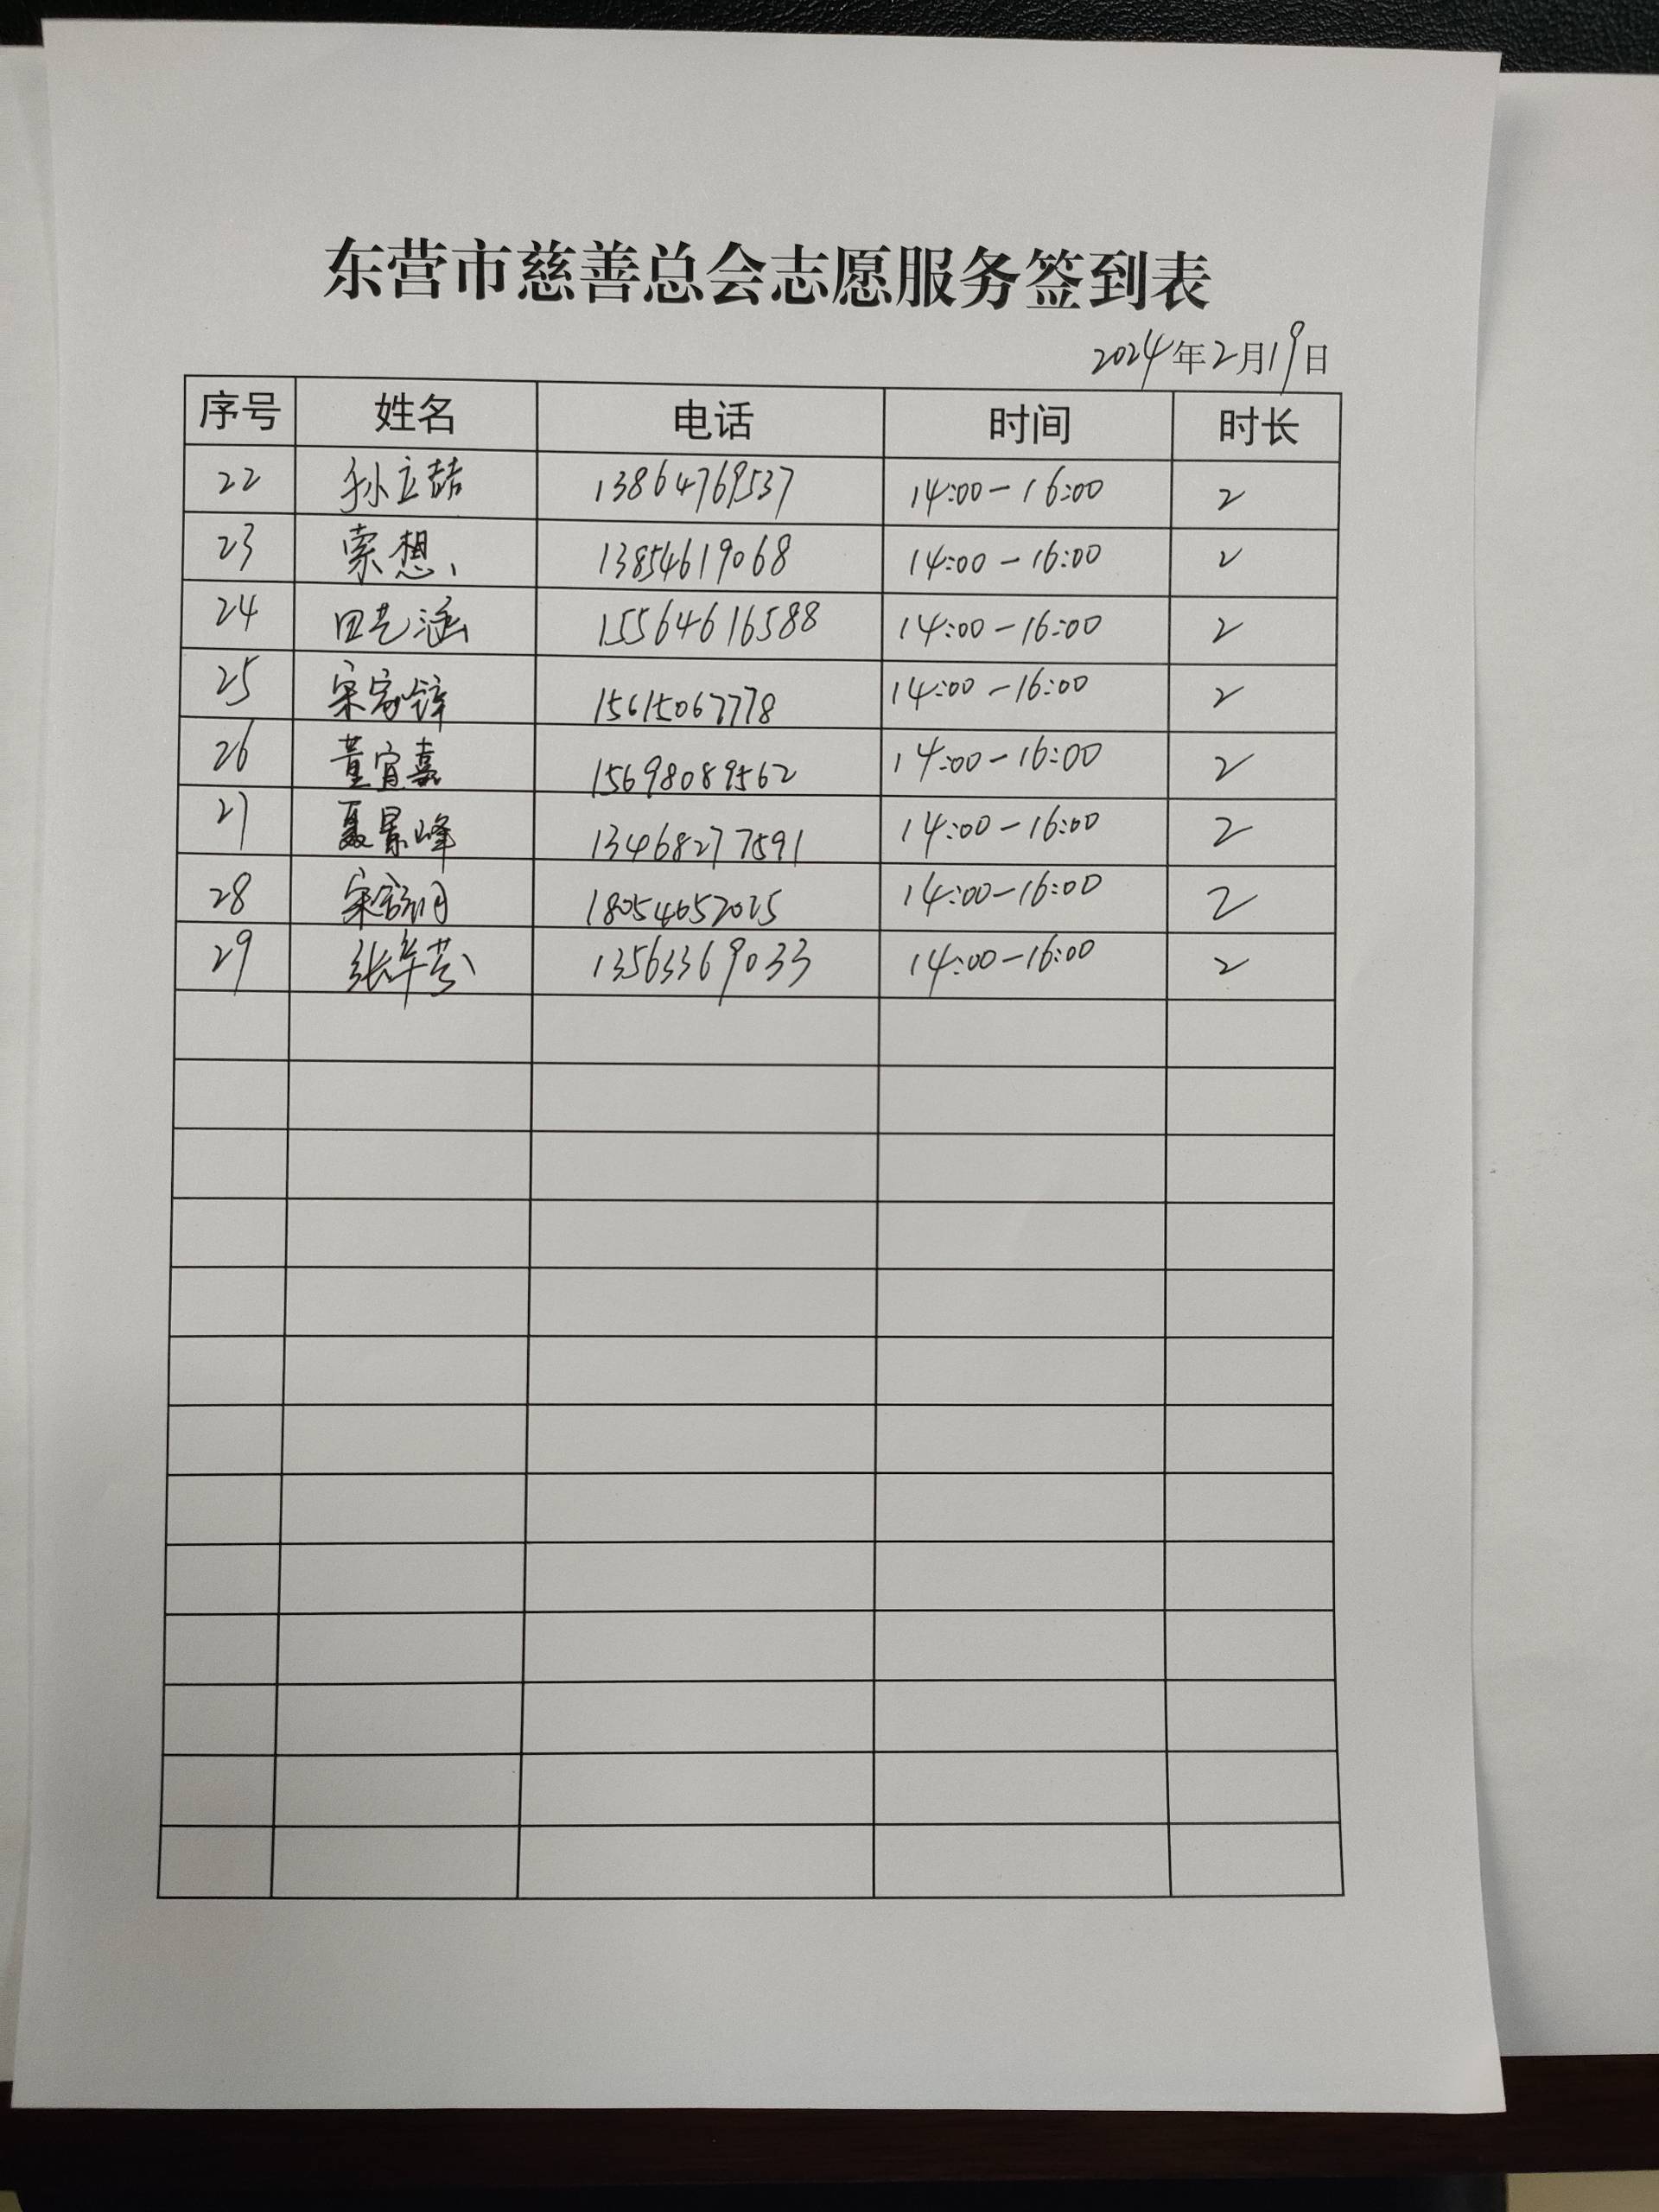 东营市慈善总会志愿服务签到表
2024年2月19日
序号 姓名 电话 时间 时长
22 孙立喆 13864769537 14:00-16:00 2
23 索想 13854619068 14:00-16:00 2
24 田艺涵 15564616588 14:00-16:00 2
25 宋家锌 15615067778 14:00-16:00 2
26 董宜嘉 15698089562 14:00-16:00 2
27 聂景峰 13468277591 14:00-16:00 2
28 宋 18054652025 14:00-16:00 2
29 张辛芸 13563369033 14:00-16:00 2